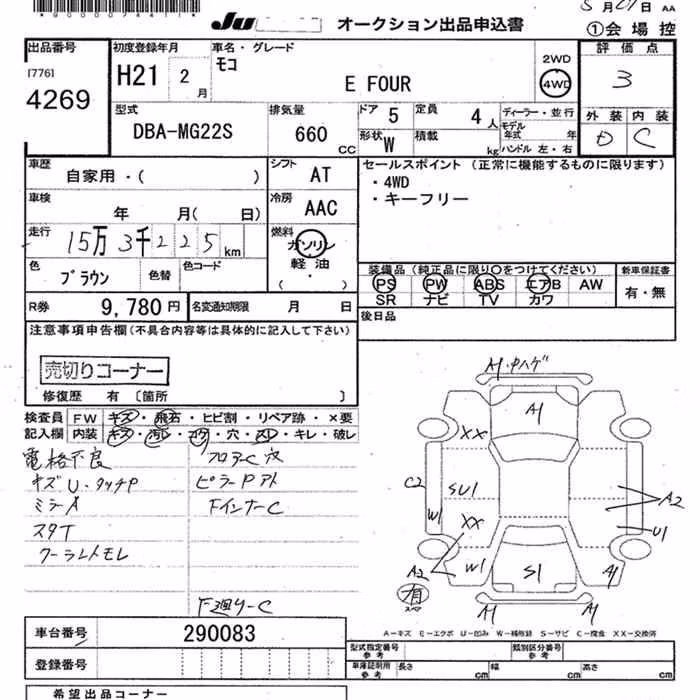 *9000074411*
5月27 AA
Ju オークション出品申込書
①会場控
出品番号
[776]
4269
初度登録年月
H21 2 月
車名・グレード
モコ
E FOUR
2WD
4WD
評価点
3
外装 内装
D C
型式
DBA-MG22S
排気量
660 CC
ドア 5
定員 4 人
形状 W
積載 kg
ディーラー・並行
モデル年式 年
ハンドル 左・右
車歴
自家用・( )
シフト AT
車検
年 月( 日)
冷房 AAC
セールスポイント (正常に機能するものに限ります)
・4WD
・キーフリー
走行 15万3千225km
燃料
ガソリン
軽油
( ・ )
色 ブラウン
色替
色コード
装備品 (純正品に限り○をつけてください)
PS PW ABS エアB AW
SR ナビ TV カワ
新車保証書
有・無
R券 9,780円
名変通知期限 月 日
後日品
注意事項申告欄(不具合内容等は具体的に記入して下さい)
売切りコーナー
修復歴 有 〔箇所 〕
検査員記入欄
FW キズ・飛石・ヒビ割・リペア跡・×要
内装 キズ・汚レ・コゲ・穴・スレ・キレ・破レ
電格不良
キズU・タッチP
ミラーA
スタT
クーラントモレ
フロアーC 穴
ピラーPアト
FインナーC
F廻りーC
A1・中ハゲ
A1
XX
C2
W1
SU1
XX
A2
W1
S1
A1
A2
U1
有
スペア
A1
A1
A−キズ E−エクボ U−凹み W−補修跡 S−サビ C−腐食 XX−交換済
車台番号 290083
登録番号
型式指定番号 参考
類別区分番号 参考
車庫証明用 参考
長さ cm
幅 cm
高さ cm
希望出品コーナー